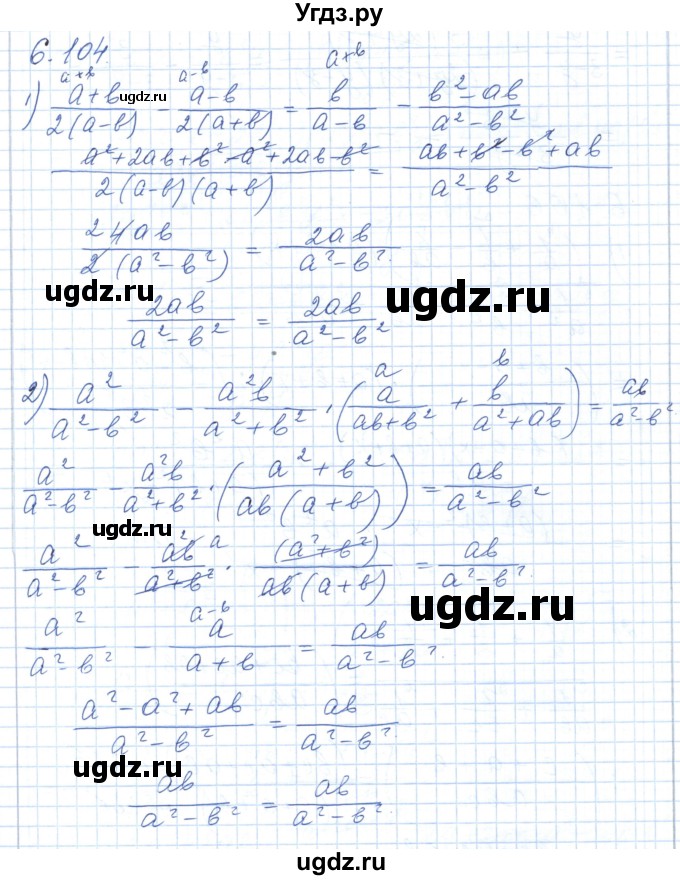 Угдз.ру
6.104
a+b a-b a+b
1) (a+b)/(2(a-b)) - (a-b)/(2(a+b)) = b/(a-b) - (b²-ab)/(a²-b²)
ugdz.ru
(a²+2ab+b²-a²+2ab-b²)/(2(a-b)(a+b)) = (ab+b²-b²+ab)/(a²-b²)
2 4ab/(2(a²-b²)) = 2ab/(a²-b²).
ugdz.ru ugdz.ru
2ab/(a²-b²) = 2ab/(a²-b²)
a b
2) a²/(a²-b²) - a²b/(a²+b²) · (a/(ab+b²) + b/(a²+ab)) = ab/(a²-b²)
a²/(a²-b²) - a²b/(a²+b²) · ((a²+b²)/(ab(a+b))) = ab/(a²-b²)
ugdz.ru
a²/(a²-b²) - a²b a/(a²+b²) · (a²+b²)/(ab(a+b)) = ab/(a²-b²).
ugdz.ru
a-b
a²/(a²-b²) - a/(a+b) = ab/(a²-b²).
(a²-a²+ab)/(a²-b²) = ab/(a²-b²).
ugdz.ru
ab/(a²-b²) = ab/(a²-b²).
ugdz.ru